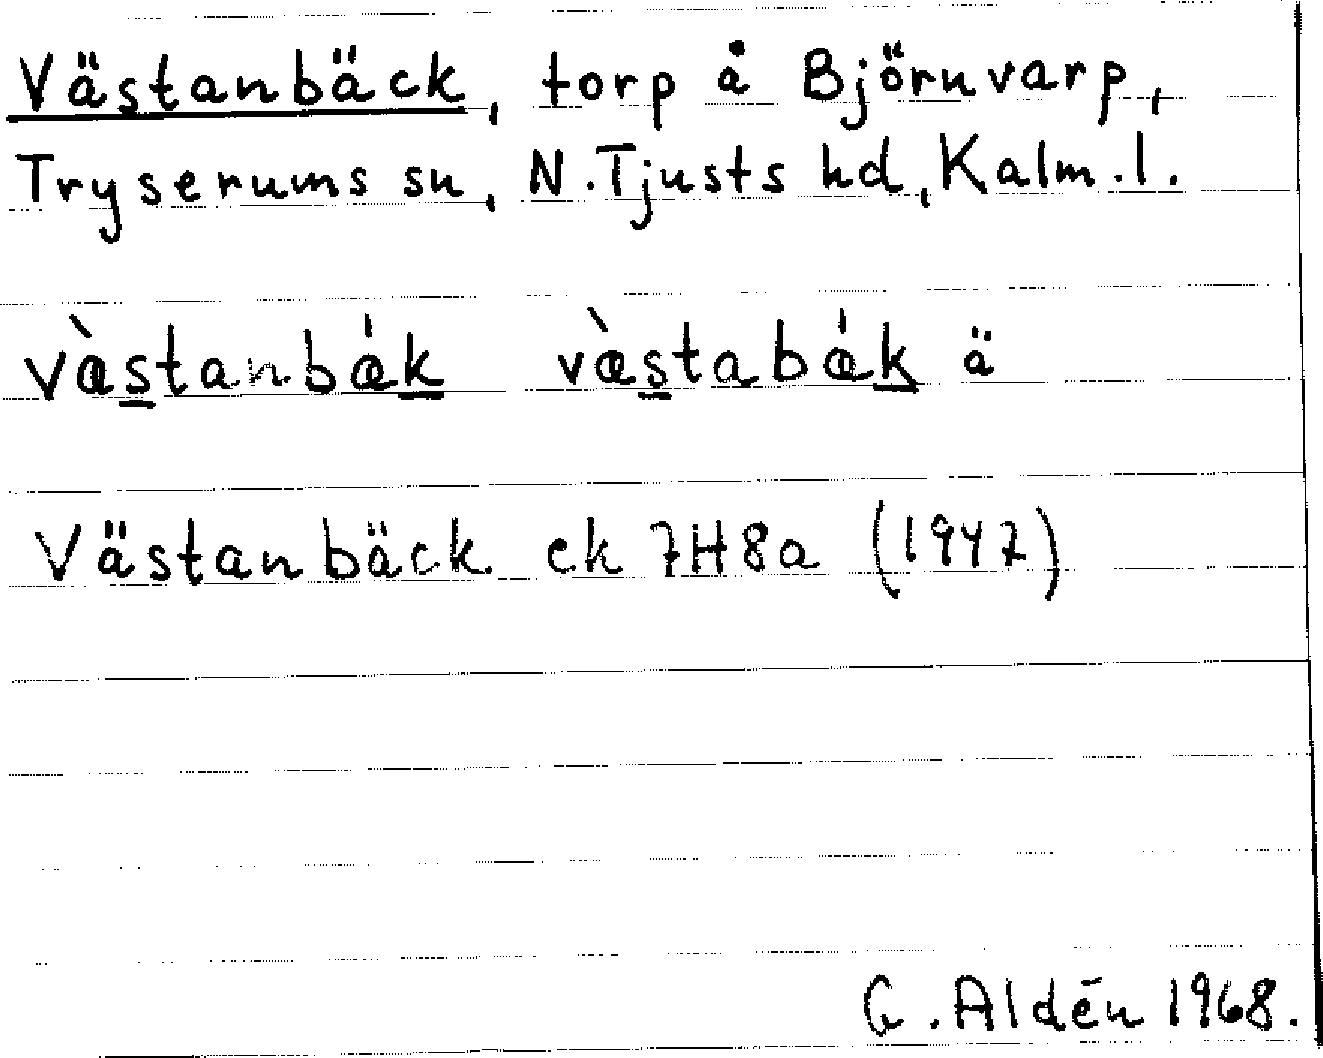 Västanbäck, torp å Björnvarp,
Tryserums sn, N. Tjusts hd, Kalm. l.
væ̀stanbǽk væ̀stabǽk ä
Västanbäck ek 7H8a (1947)
G. Aldén 1968.